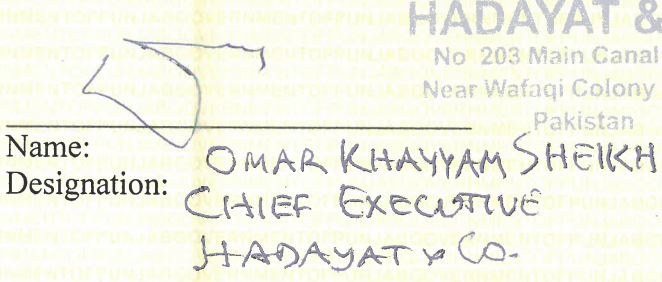 HADAYAT &
No 203 Main Canal
Near Wafaqi Colony
Pakistan
Name: OMAR KHAYYAM SHEIKH
Designation: CHIEF EXECUTIVE
HADAYAT & CO.